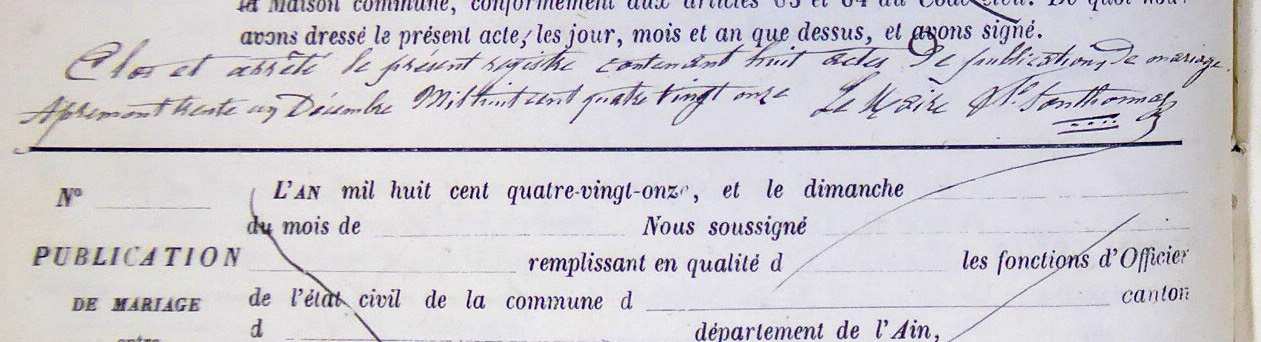 la Maison commune, conformément aux articles 63 et 64 du Code civil. De quoi nous
avons dressé le présent acte, les jour, mois et an que dessus, et avons signé.
Clos et arrêté le présent registre contenant huit actes de publications de mariage.
Apremont trente un Décembre Mil huit cent quatre vingt onze Le Maire
N° L'AN mil huit cent quatre-vingt-onze, et le dimanche
du mois de Nous soussigné
PUBLICATION remplissant en qualité d les fonctions d'Officier
DE MARIAGE de l'état civil de la commune d canton
entre d département de l'Ain,